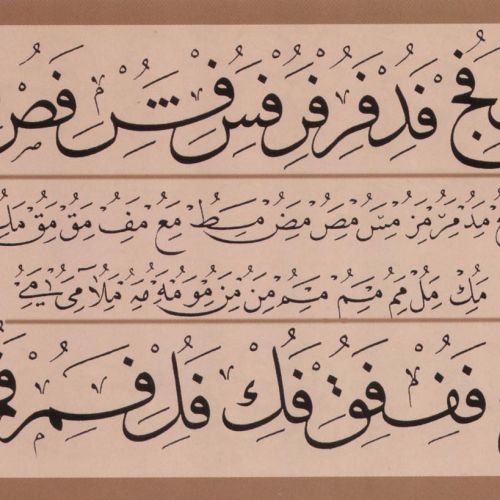 فج فد فر فر فس فش فص
مد مر مز مس مص مض مط مع مف مق مق مك
مك مل مم مم مم من من مو مه مه ملا مى مى
فف فق فك فل فم